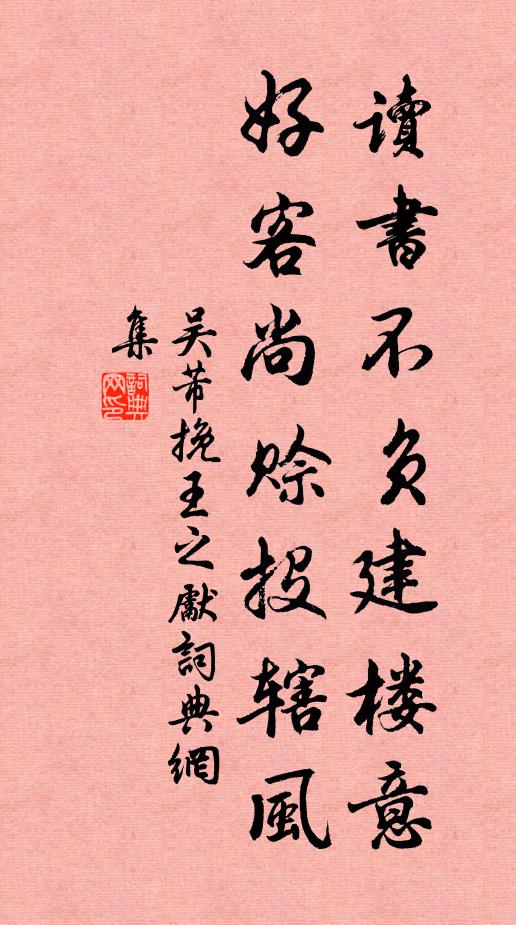 讀書不負建楼意
好客尚赊投辖風
吴芾挽王之獻詞典網
集
詞典网印